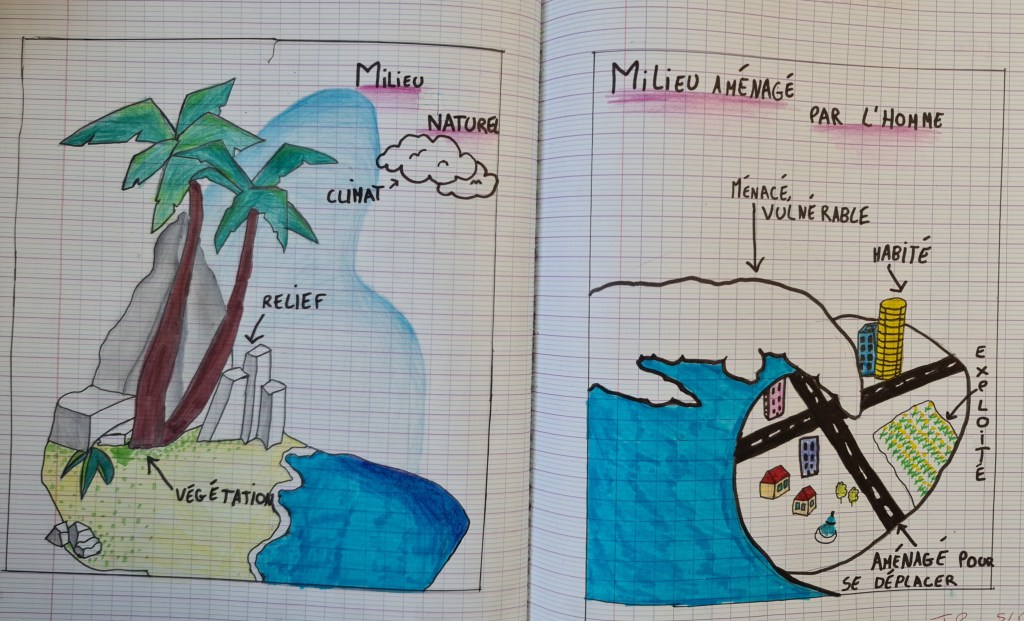 MiLiEU
NATUREL
CLiMAT
RELiEF
VÉGÉTATION
MiLiEU AMÉNAGÉ
PAR L'HOMME
MÉNACÉ,
VULNÉRABLE
HABiTÉ
EXPLOiTÉ
AMÉNAGÉ POUR
SE DÉPLACER